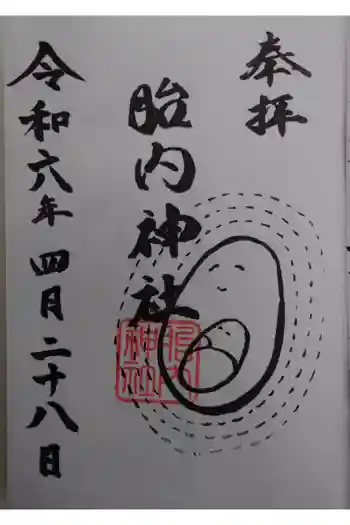 奉拝
胎内神社
令和六年四月二十八日
胎内
神社